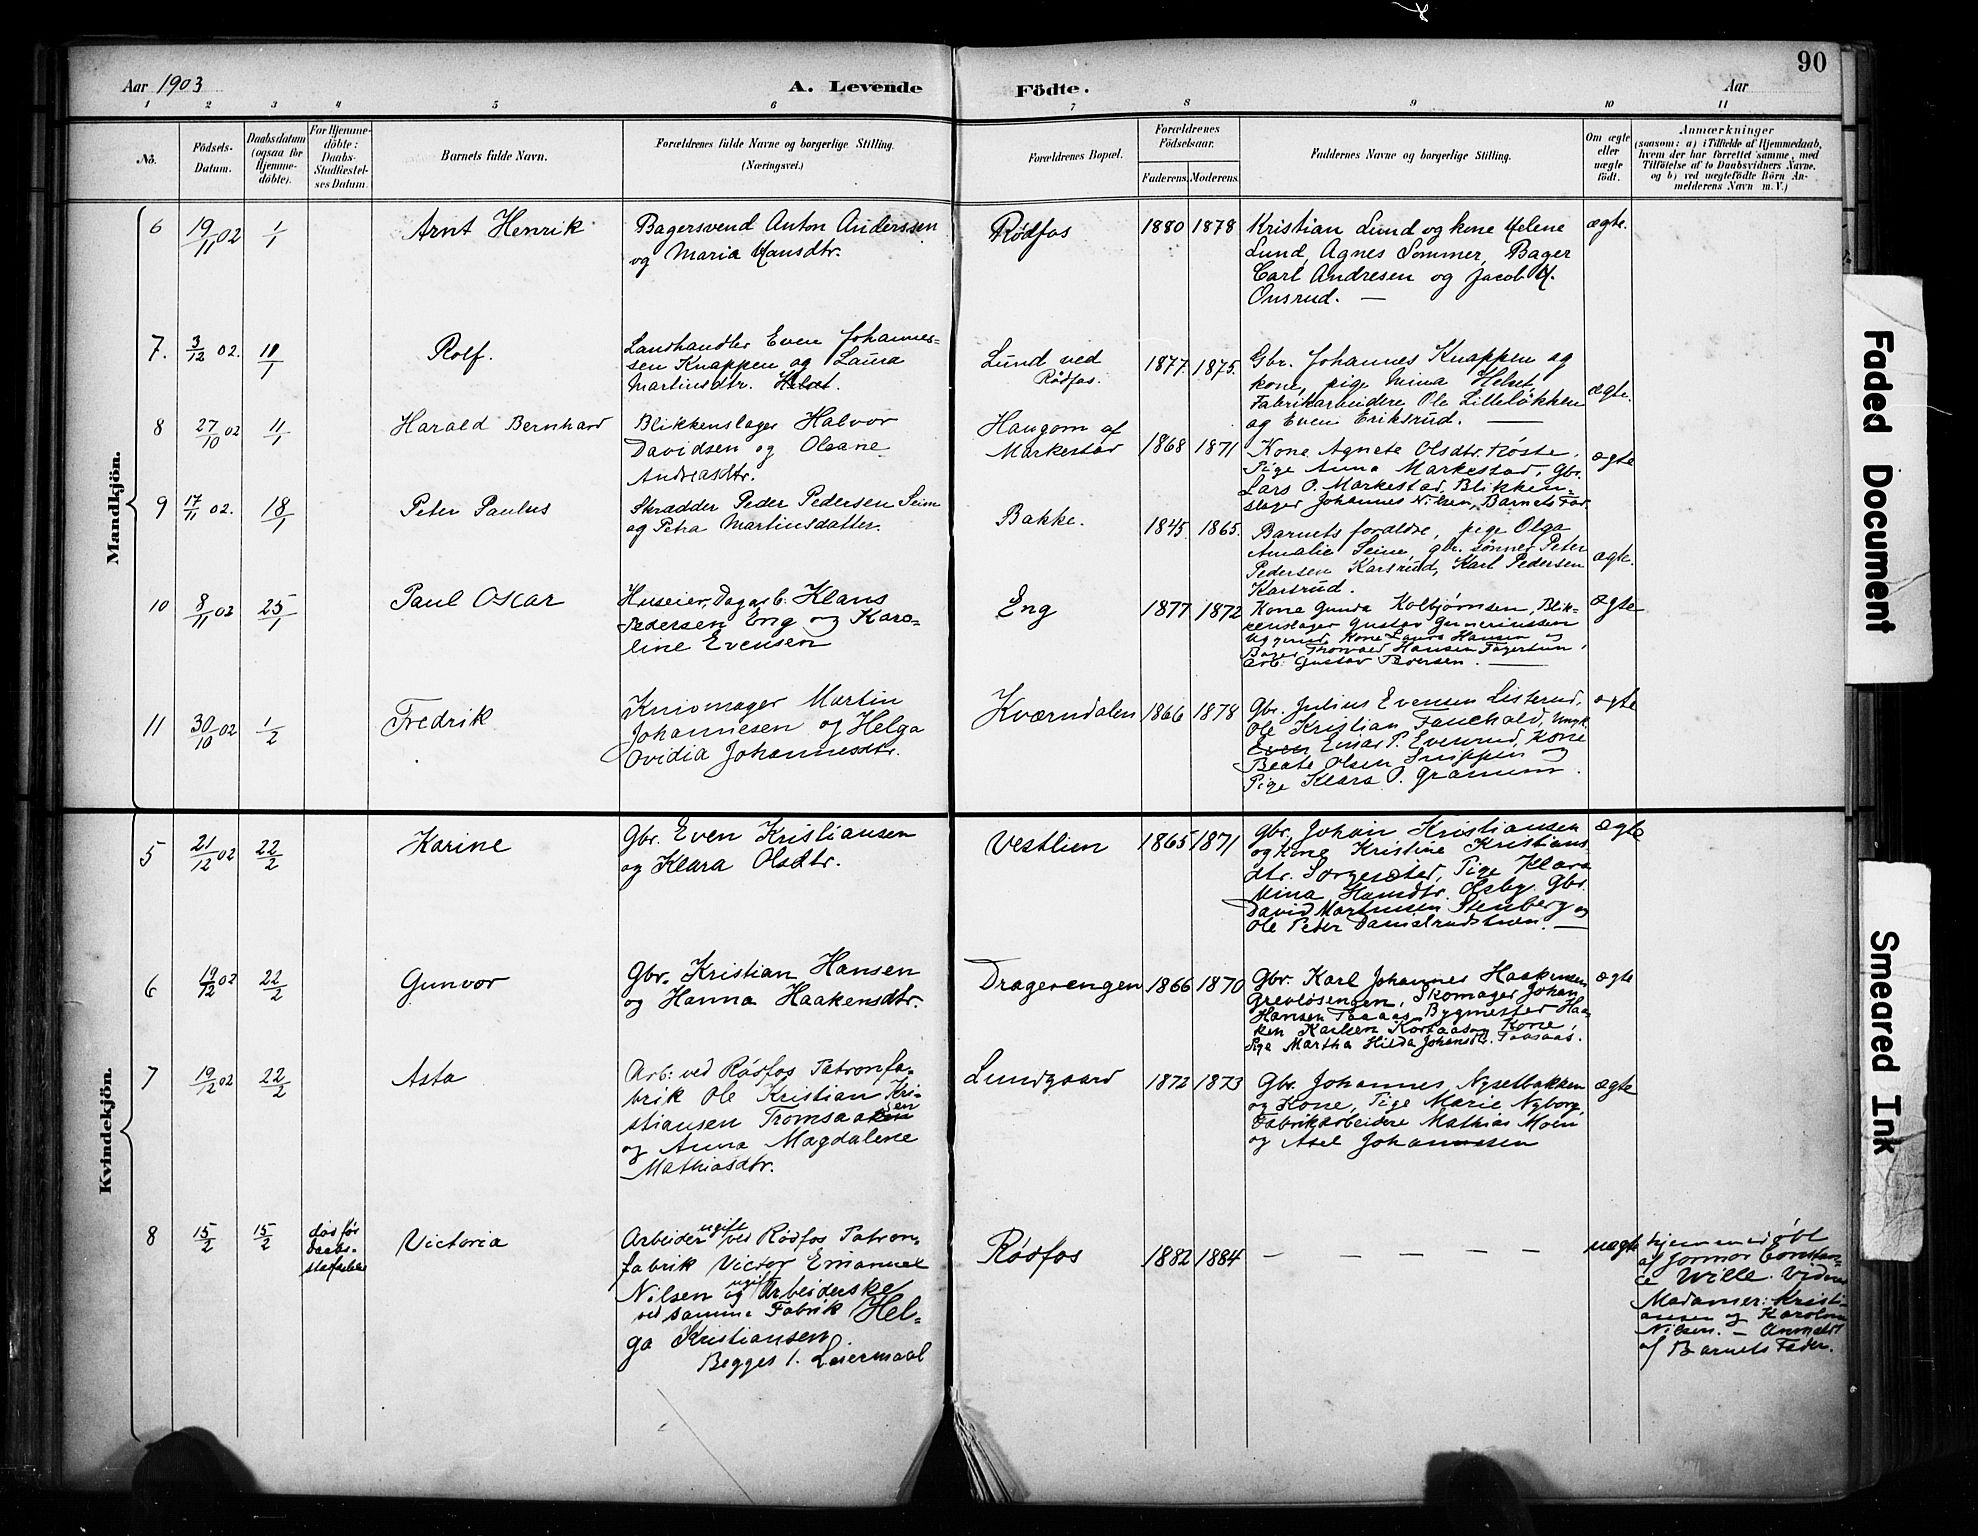 90
Aar 1903
A. Levende
Födte.
Aar
1 2 3 4 5 6 7 8 9 10 11
No.
Födsels-
Datum.
Daabsdatum
(ogsaa for
Hjemme-
döbte).
For Hjemme-
döbte:
Daabs-
Stadfæstel-
ses Datum.
Barnets fulde Navn.
Forældrenes fulde Navne og borgerlige Stilling.
(Næringsvei.)
Forældrenes Bopæl.
Forældrenes
Födselsaar.
Faderens. Moderens.
Faddernes Navne og borgerlige Stilling.
Om ægte
eller
uægte
födt.
Anmærkninger
(saasom: a) i Tilfælde af Hjemmedaab,
hvem der har forrettet samme, med
Tilföielse af to Daabsvidners Navne,
og b) ved uægtefödte Börn An-
melderens Navn m. V.)
Mandkjön.
6 19/11 02 1/1 Arnt Henrik
Bagersvend Anton Anderssen
og Maria Hansdtr.
Rødfos 1880 1878
Kristian Lund og kone Helene
Lund, Agnes Sommer, Bager
Carl Andresen og Jacob H.
Onsrud. —
ægte.
7. 3/12 02. 11/1 Rolf.
Landhandler Even Johannes-
sen Knappen og Laura
Martinsdtr. Helset.
Lund ved
Rødfos.
1877. 1875.
Gbr. Johannes Knappen og
kone, pige Mina Helset,
Fabrikarbeidere Ole Lilleløkken
og Even Eriksrud. —
ægte.
8 27/10 02 11/1 Harald Bernhard
Blikkenslager Halvor
Davidsen og Oleane
Andreasdtr.
Haugom af
Markestad
1868 1871
Kone Agnete Olsdtr. Røste,
Pige Anna Markestad, Gbr.
Lars O. Markestad, Blikken-
slager Johannes Nilsen, Barnets Far.
ægte
9 17/11 02. 18/1 Peter Paulus
Skrædder Peder Pedersen Seine
og Petra Martinsdatter.
Bakke. 1845. 1865.
Barnets forældre, pige Olga
Amalie Seine, gbr. sønner Peter
Pedersen Karsrud, Karl Pedersen
Karsrud.
ægte.
10 8/11 02 25/1 Paul Oskar
Huseier, Dagarb. Klaus
Pedersen Eng og Karo-
line Evensen
Eng 1877 1872
Kone Gunda Kolbjørnsen, Blik-
kenslager Gustav Gunneriussen
Kone Laura Hansen og
Bager Thorvald Hansen Fagertun,
Arb. Gustav Pedersen. —
ægte
11 30/10 02 1/2 Fredrik
Knivmager Martin
Johannesen og Helga
Ovidia Johannesdtr.
Kværndalen 1866 1878
Gbr. Julius Evensen Listerud,
Ole Kristian Fauchald, Ungk.
Even Einar P. Evenrud, Kone
Beate Olsen Snippen og
Pige Klara O. Gramum.
ægte
Kvindekjön.
5 21/12 02 22/2 Karine
Gbr. Even Kristiansen
og Klara Olsdtr.
Vestlien 1865 1871
Gbr. Johan Kristiansen
og Kone Kristine Kristians
dtr. Sorgesæter, Pige Klara
Mina Hansdtr. Olsby. Gbr.
David Martinsen Stenberg og
Ole Peter Danielrudstuen. —
ægte
6 19/12 02 22/2 Gunvor
Gbr. Kristian Hansen
og Hanna Haakensdtr.
Dragerengen 1866 1870
Gbr. Karl Johannes Haakensen
Grevløsengen, Skomager Johan
Hansen Taasaas, Bygmester Haa-
ken Karlsen Korsaas og Kone,
Pige Martha Hilda Johansdt. Taasaas.
ægte
7 19/2 02 22/2 Asta
Arb: ved Rødfos Patronfa-
brik Ole Kristian Kri-
stiansen Tromsaaken
en
og Anna Magdalene
Mathiasdtr.
Lundgaard 1872 1873
Gbr. Johannes Nysetbakken
og Kone, Pige Marie Nyborg,
Fabrikarbeidere Mathias Moen
og Axel Johannessen
ægte
8 15/2 15/2
død før
Daabs-
stadfæstelse
Victoria
ugift
Arbeider ved Rødfos Patron-
fabrik Victor Emanuel
Nilsen og ugift Arbeiderske
ved samme Fabrik Hel-
ga Kristiansen.
Begges 1. Leiermaal
Rødfos 1882 1884 — — — — — —
uægte
hjemmedøbt
af Jormor Constan-
ce Wille. Vidner
Madamer: Kristi-
ansen og Karoline
Nilsen. — Anmeldt
af Barnets Fader.
Faded Document
Smeared Ink